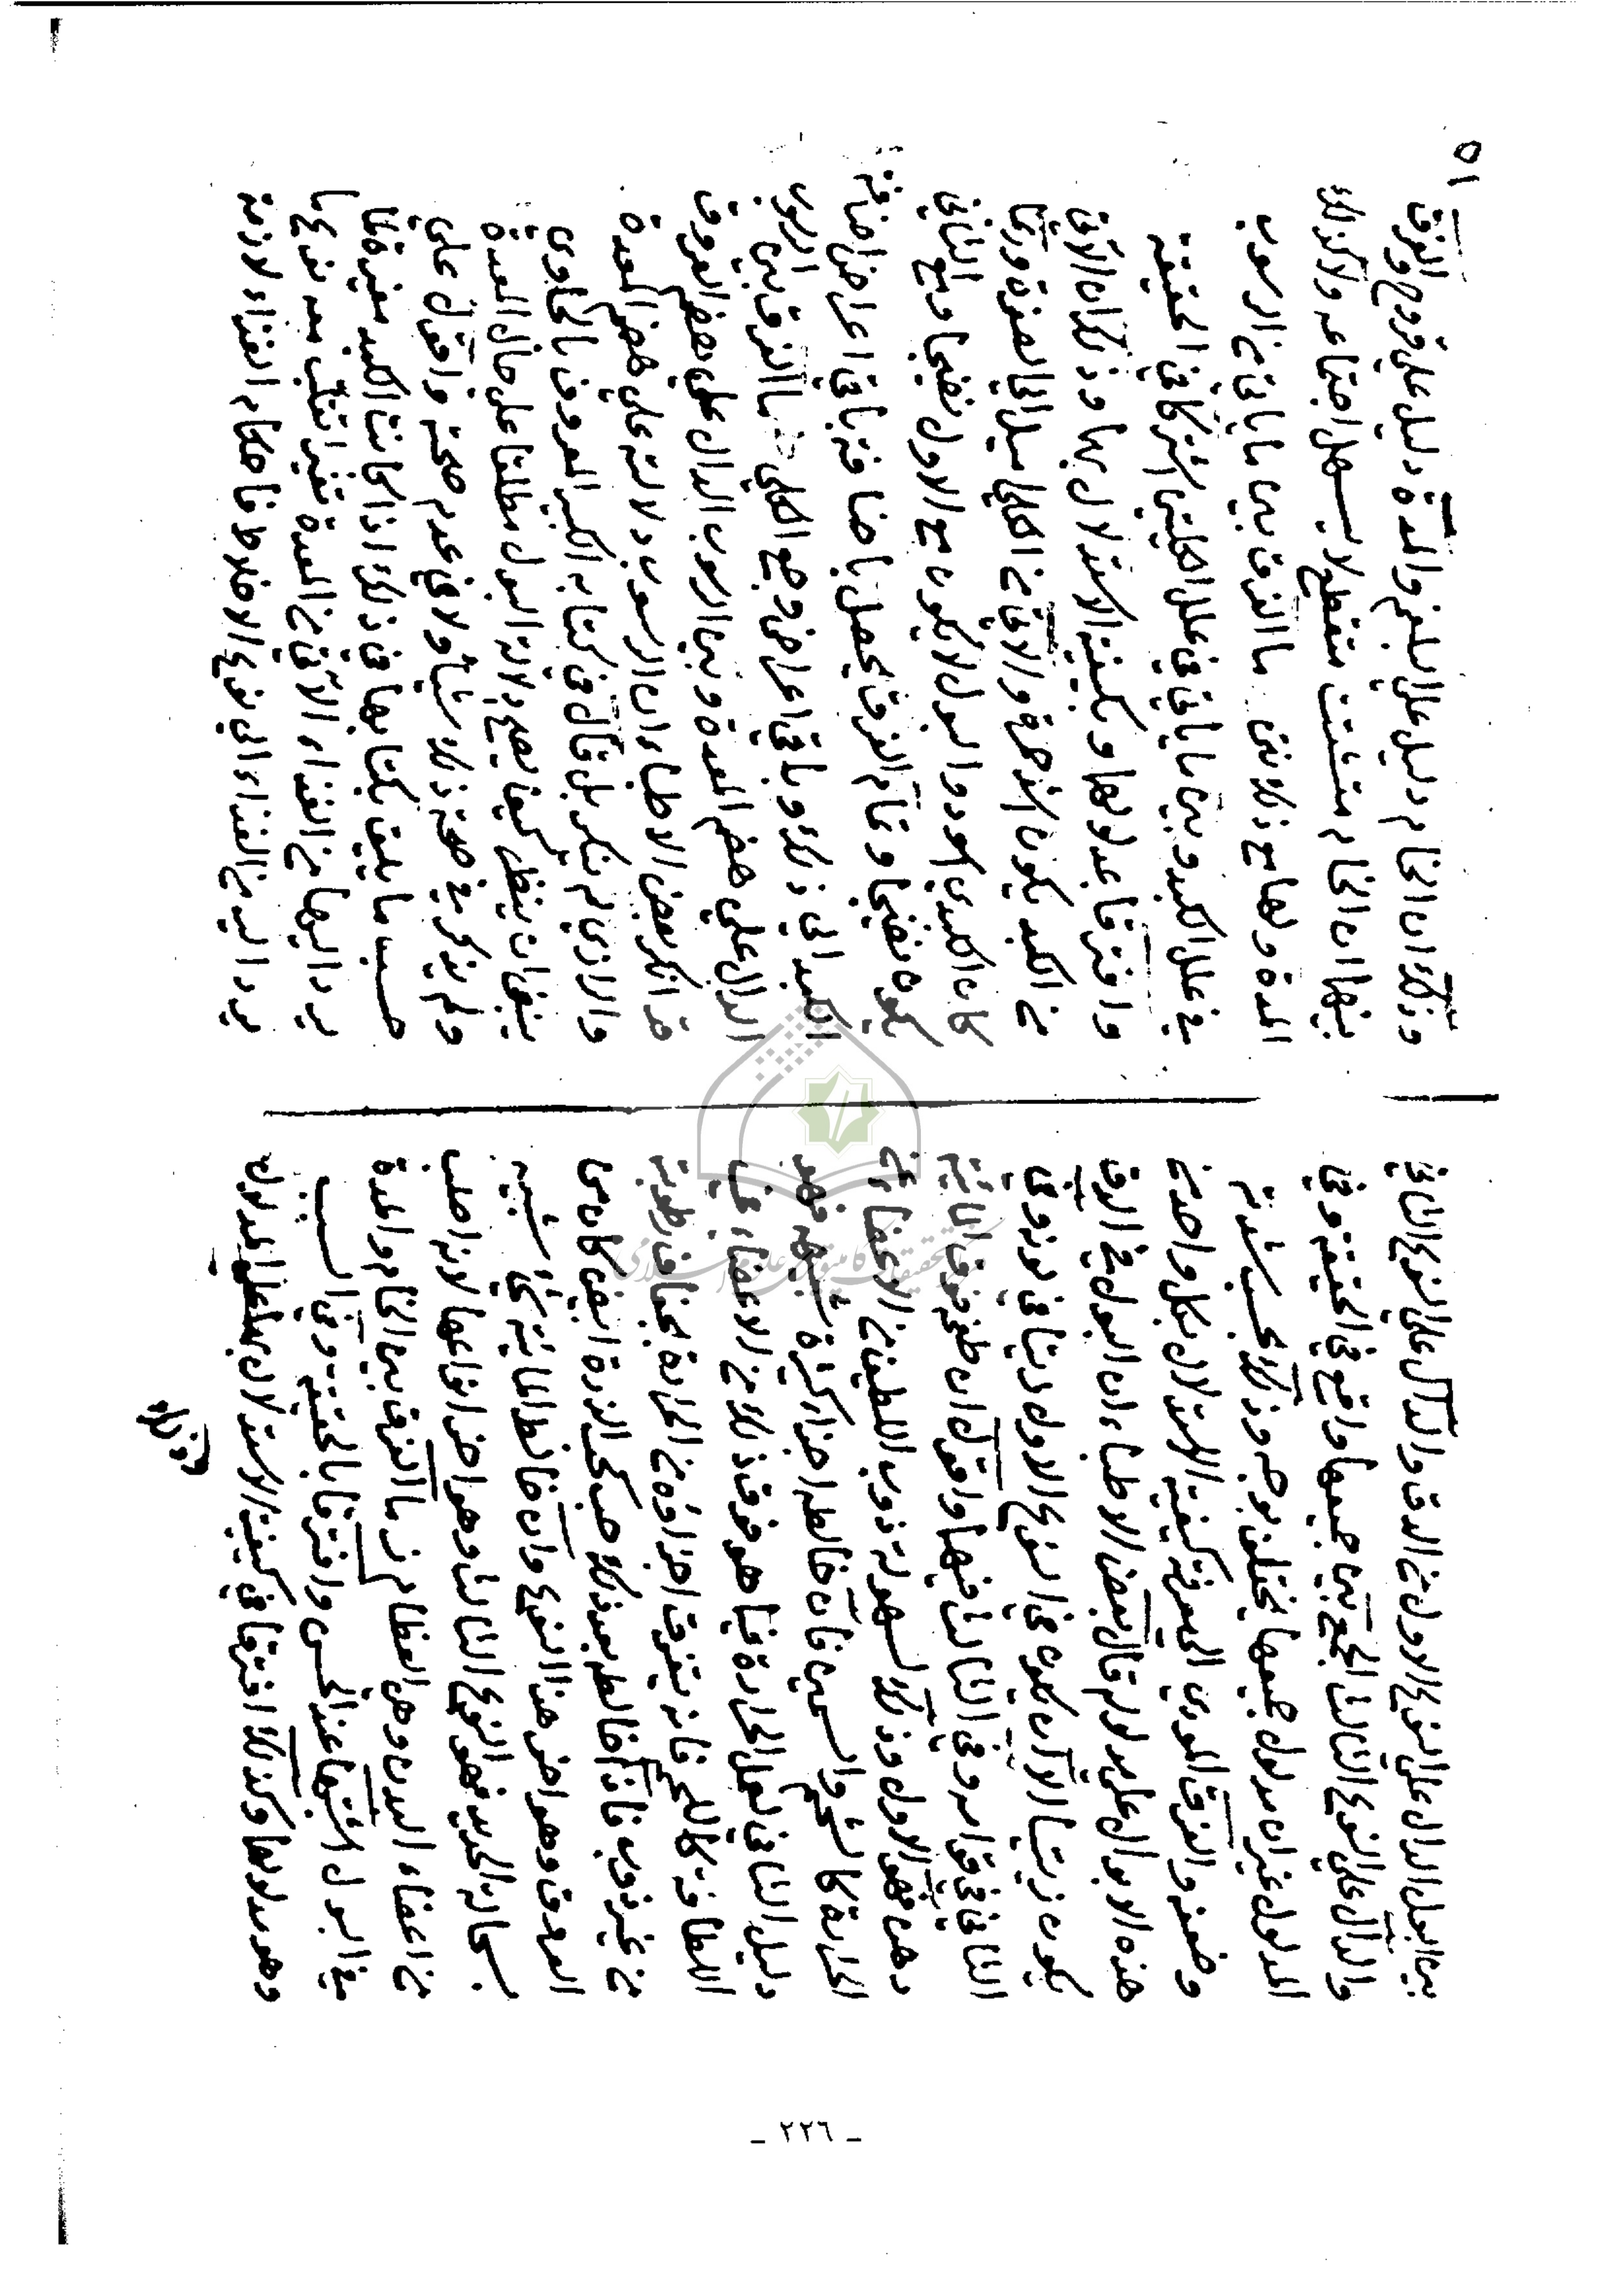 بين البول الدال على النوع الاول من الدق والدال على النوع الثاني
والدال على النوع الثالث الجمع بين جميعها واقع في الحقيقة وفي
المدلول غير ان مدلول جميعها يختلف بوجه وذلك بحسب شدته
وضعفه والفرق المؤدي الى معرفة كيفية الاستدلال بكل واحد من
هذه الابوال على مدلوله قال بعض الاطباء ان البول في الدق
يكون زيتيا الا انه يكون في النوع الاول زيتيا في لونه وفي
الثاني في قوامه وفي الثالث فيهما واقول ان طفى فوق المائية
دهن فهو الاول وذلك لسهولة ذوب اللطيف من الاعضاء من
الحرارة كالشحم والسمين فان خالطه اجزاء كبيرة فهو
دليل الثاني لفعل الحرارة فيما هو فوق ذلك من الاعضاء في
اللطافة كاللحم فانه يتفرق اجزاؤه من الحرارة بجفاف رطوبته
من غير ذوب فان خالطه بعد ذلك كحب الذرة ابيض كان من
العروق وهو اخر هذا النوع وان خالط المائية شيء شبيه
بسحالة الحديد فهو النوع الثالث وهو اخر انواعها لانه اصلب
من اعضاء البدن وهي العظام نز ما الفرق بين الخام والمدة
في البول اشتبها عند الحس وافترقا بالحقيقة وفي السبب
وهو مدلولها وكذلك افترقا في كيفية الاستدلال بهما على المدلول
وذلك
٥١
وذلك ان الخام دليل على البلغم والمدة دليل على قروح والفرق
بينهما ان الخام متشتت متقطع لا يسهل اجتماعه ولا كذلك
المدة وهما مع ذلك نتن ما الفرق بين ما يأتي من الرسوب
في علل الكبد وبين ما يأتي في علل الكليتين اشتركا في الحقيقة
وافترقا بمدلولهما وبكيفية الاستدلال بهما وذلك ان الآتي
من الكبد يكون الى الحمرة والآتي من الكلى يميل الى الصفرة وربما
كان الكبدي اسود والبول لا يكون مع الاول نضيجا ومع الثاني
يكون نضيجا وتمام الفرق يحصل باضافة باقي اعراض
الكبد الى ذلك وباقي اعراض وجع الكلى ما الفرق بين الرسوب
الدال على هضم المعدة وبين الرسوب الدال على هضم العروق
قد انكر بعض الاطباء ان الرسوب دلالة على هضم المعدة
والرازي لم ينكر بل قال في كتابه الكبير المعروف بالحاوي
ينبغي ان ينظر كيف يصح دلالة البول مطلقا على حال المعدة
ولم يذكر في صحة ذلك شيئا ولا في عدم صحته واقول على
حسب ما يليق بكتابنا هذا في ذلك اذا كانت الكبد مغيرة لما
يرد اليها من الغذاء الآتي من المعدة تغيرا تنقلب معه نوع ما
يرد اليه من الغذاء الى نوع الاخلاط فاحكام الغذاء لازمة
مركز تحقيقات كامپيوترى علوم اسلامى
ـ ٢٢٦ ـ